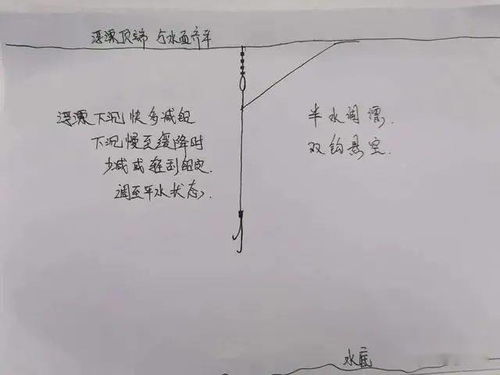 浮漂顶端 与水面齐平
浮漂下沉快多减铅
下沉慢至缓降时
少减或轻刮铅皮
调至平水状态.
半水调漂.
双钩悬空.
水底